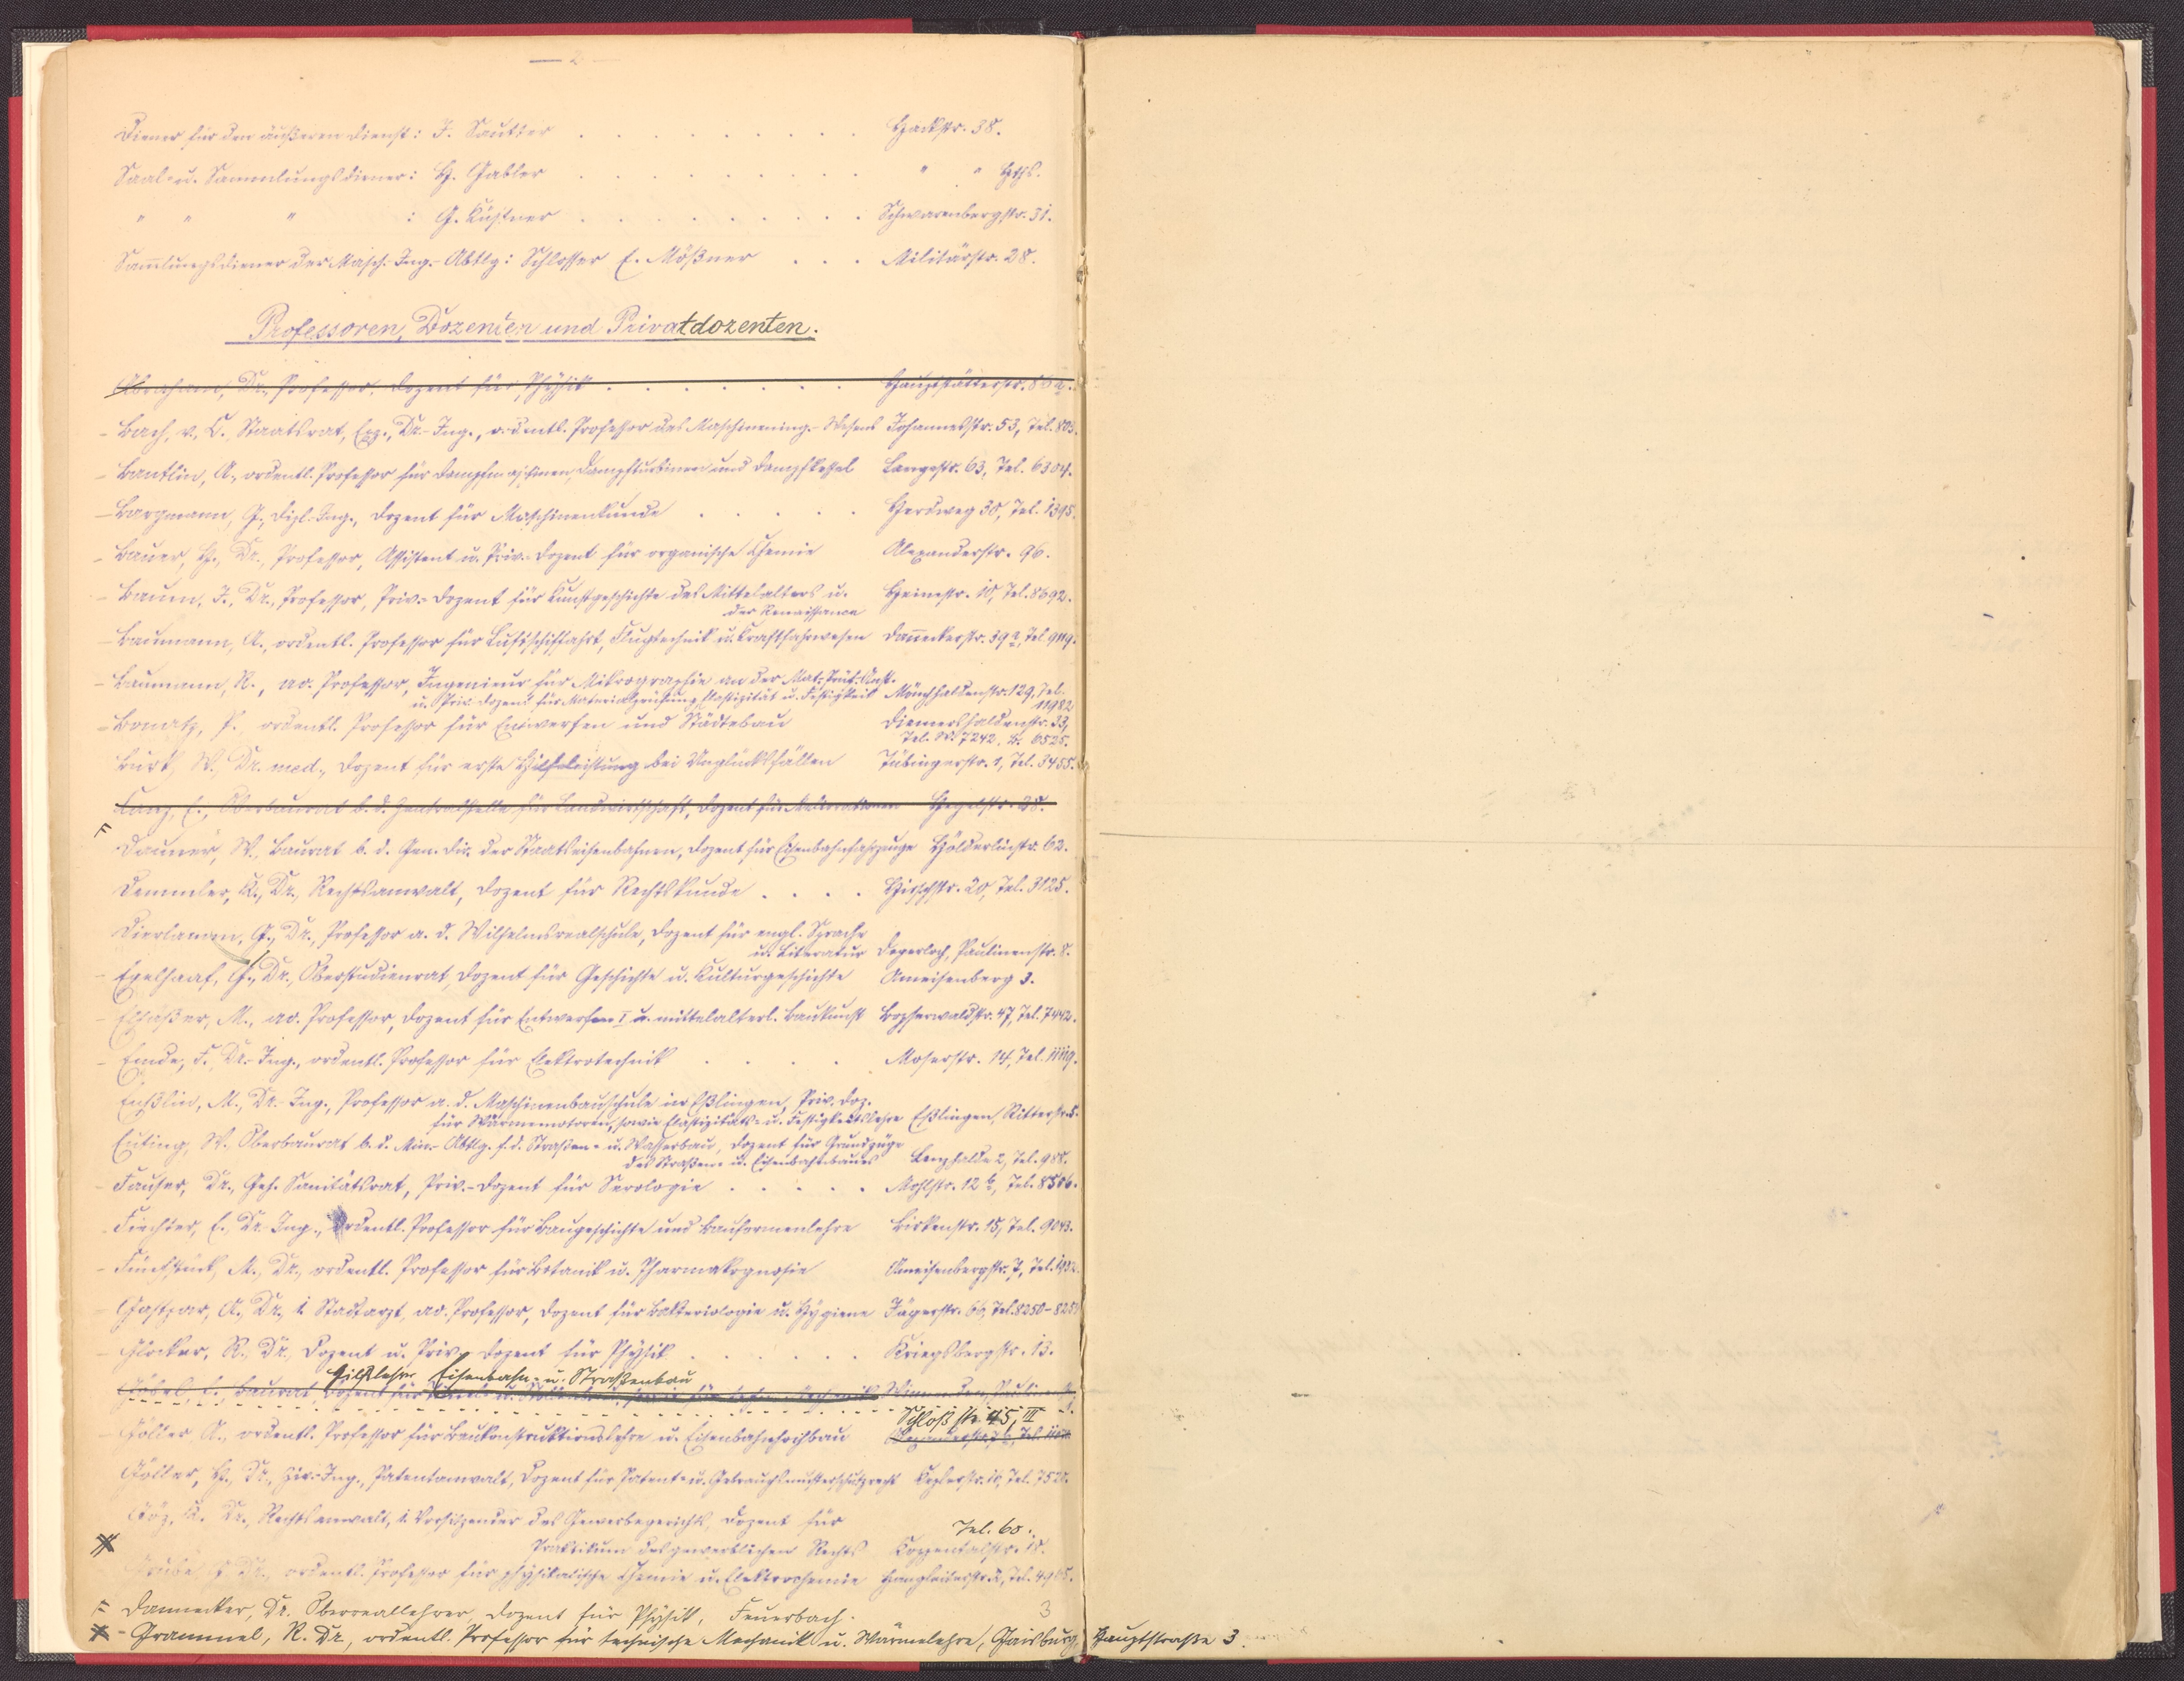 — 2 —
Diener für den äußeren Dienst: J. Sautter . . . . . . . . . Hackstr. 38.
Saal- u. Sammlungsdiener: H. Gabler . . . . . . . . . " " Hths.
" " " : G. Küstner . . . . . . . . . Schwarenbergstr. 31.
Sam̄lungsdiener der Masch.-Ing.-Abtlg: Schlosser E. Mößner . . . Militärstr. 28.
Professoren, Dozenten und Privatdozenten.
Abraham, Dr., Professor, Dozent für Physik . . . . . . . Hauptstätterstr.
- Bach, v., C., Staatsrat, Exz., Dr.-Ing., o̅rdentl. Professor des Maschinening.-Wesens Johannesstr. 53, Tel. 803.
- Bantlin, A., ordentl. Professor für Dampfmaschinen, Dampfturbinen und Dampfkessel Langestr. 63, Tel. 6304.
- Bargmann, G., Dipl.-Ing., Dozent für Maschinenkunde . . . . . Herdweg 30, Tel. 1395.
- Bauer, H., Dr., Professor, Assistent u. Priv.-Dozent für organische Chemie Alexanderstr. 96.
- Baum, J., Dr., Professor, Priv.-Dozent für Kunstgeschichte des Mittelalters u. Heinestr. 10, Tel. 8692.
der Renaissance
- Baumann, A., ordentl. Professor für Luftschiffahrt, Flugtechnik u. Kraftfahrwesen Dan̄eckerstr. 39a, Tel. 9119.
- Baumann, R., ao. Professor, Ingenieur für Mikrographie an der Mat.-Prüf.-Anst.
u. Priv.-Dozent für Materialprüfung, Elastizität u. Festigkeit Mönchhaldenstr. 129, Tel. 11982
- Bonatz, P., ordentl. Professor für Entwerfen und Städtebau Diemershaldenstr. 33,
Tel. W. 7242, B. 6525.
Burk, W., Dr. med., Dozent für erste Hilfeleistung bei Unglücksfällen Tübingerstr. 1, Tel. 3455.
Canz, E., Oberbaurat b. d. Zentralstelle für Landwirtschaft, Dozent für Meliorationen Hegelstr. 28.
F
Dauner, W., Baurat b. d. Gen. Dir. der Staatseisenbahnen, Dozent für Eisenbahnfahrzeuge Hölderlinstr. 62.
Demmler, K., Dr., Rechtsanwalt, Dozent für Rechtskunde . . . . Hirschstr. 20, Tel. 3125.
Dierlamm, G., Dr., Professor a. d. Wilhelmsrealschule, Dozent für engl. Sprache
u. Literatur Degerloch, Paulinenstr. 8.
- Egelhaaf, G., Dr., Oberstudienrat, Dozent für Geschichte u. Kulturgeschichte Ameisenberg 3.
- Elsäßer, M., ao. Professor, Dozent für Entwerfen I u. mittelalterl. Baukunst Bopserwaldstr. 47, Tel. 7442.
- Emde, F., Dr.-Ing., ordentl. Professor für Elektrotechnik . . . . Moserstr. 14, Tel. 11119.
Enßlin, M., Dr.-Ing., Professor a. d. Maschinenbauschule in Eßlingen, Priv. Doz.
für Wärmemotoren, sowie Elastizitäts- u. Festigkeitslehre Eßlingen, Ritterstr.
Euting, W. Oberbaurat b. d. Min.-Abtlg. f. d. Straßen- u. Wasserbau, Dozent für Grundzüge
des Straßen- u. Eisenbahnbaues Lenzhalde 2, Tel. 988.
- Fauser, Dr., Geh. Sanitätsrat, Priv.-Dozent für Serologie . . . . . Mohlstr. 12 b, Tel.
- Fiechter, E., Dr.-Ing., ordentl. Professor für Baugeschichte und Bauformenlehre Birkenstr. 15, Tel. 9043.
- Fünfstück, M., Dr., ordentl. Professor für Botanik u. Pharmakognosie Ameisenbergstr. 7, Tel. 1932.
- Gastpar, A., Dr., 1. Stadtarzt, ao. Professor, Dozent für Bakteriologie u. Hygiene Jägerstr. 66, Tel. 8250-825
- Glocker, R., Dr., Dozent u. Priv. Dozent für Physik . . . . . . Kriegsbergstr. 13.
Hilfslehrer Eisenbahn- u. Straßenbau
Göbel, E., Baurat, Dozent für Winnenden,
Schloß str. 45, III
- Göller, A., ordentl. Professor für Baukonstruktionslehre u. Eisenbahnhochbau
Göller, H., Dr., Ziv.-Ing., Patentanwalt, Dozent für Patent- u. Gebrauchsmusterschutzrecht Keplerstr. 10, Tel. 7520.
Göz, K. Dr., Rechtsanwalt, 1. Vorsitzender des Gewerbegerichts, Dozent für
Tel. 60.
Praktikum des gewerblichen Rechts Koppentalstr. 18.
Grube, G. Dr., ordentl. Professor für physikalische Chemie u. Elektrochemie
F Dannecker, Dr. Oberreallehrer, Dozent für Physik, Feuerbach.
3
- Grammel, R. Dr., ordentl. Professor für technische Mechanik u. Wärmelehre, Gaisburg, Hauptstraße 3.